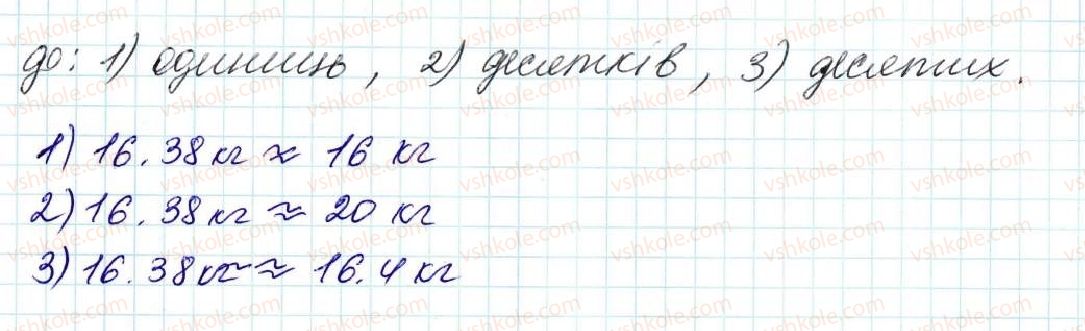 до: 1) одиниць, 2) десятків, 3) десятих.
1) 16.38 кг ≈ 16 кг
2) 16.38 кг ≈ 20 кг
3) 16.38 кг ≈ 16.4 кг